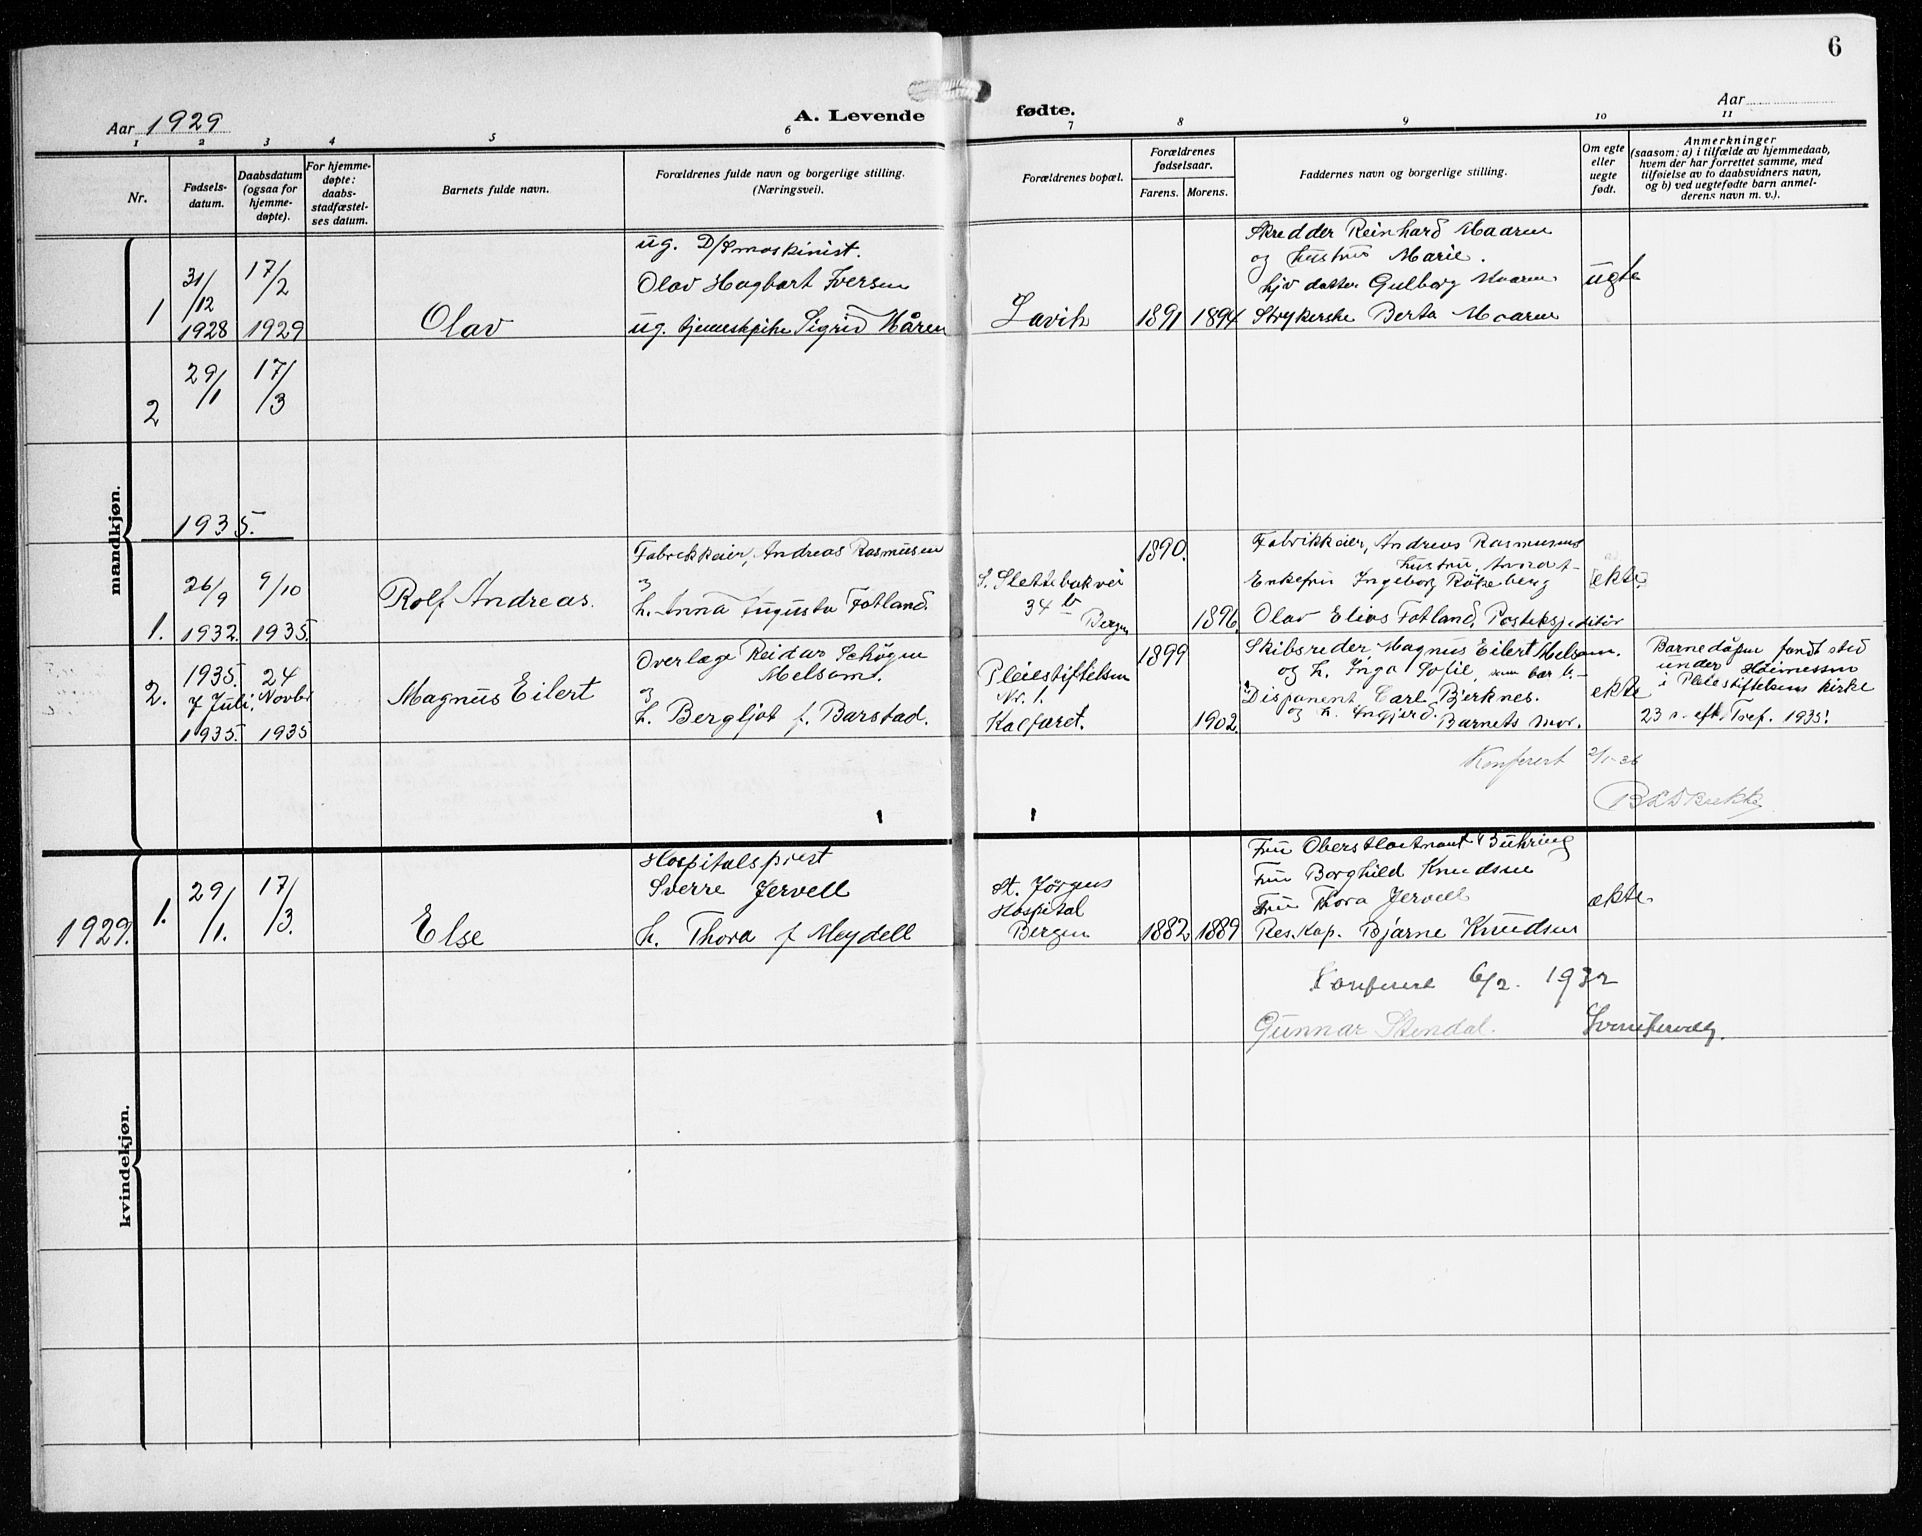 6
Aar 1929
A. Levende fødte.
Aar
1 2 3 4 5 6 7 8 9 10 11
Nr.
Fødsels-
datum.
Daabsdatum
(ogsaa for
hjemme-
døpte).
For hjemme-
døpte:
daabs-
stadfæstel-
ses datum.
Barnets fulde navn.
Forældrenes fulde navn og borgerlige stilling.
(Næringsvei).
Forældrenes bopæl.
Forældrenes
fødselsaar.
Farens. Morens.
Faddernes navn og borgerlige stilling.
Om egte
eller
uegte
født.
Anmerkninger
(saasom: a) i tilfælde av hjemmedaab,
hvem der har forrettet samme, med
tilføielse av to daabsvidners navn,
og b) ved uegtefødte barn anmel-
derens navn m. v.).
mandkjøn.
1
31/12
1928
17/2
1929
Olav
ug. D/S maskinist.
Olav Hagbart Iversen
ug. tjenestepike Sigrid Måren
Lavik
1891 1894
Skredder Reinhard Maaren
og hustru Marie.
hjv datter Gulborg Maaren
Strykerske Berta Maaren
ugte
2
29/1
17/3
1935.
1.
26/9
1932.
9/10
1935.
Rolf Andreas.
Fabrikkeier, Andreas Rasmusen
og
h. Anna Augusta Fotland.
S. Slettebakvei
34 b
Bergen
1890.
1896.
Fabrikkeier, Andreas Rasmusens
hustru, Anna
Enkefru Ingeborg Røkeberg
Olav Elias Fotland, Postekspeditør
ekte
2.
1935.
7 Juli.
1935.
24
Novbr
1935
Magnus Eilert
Overlæge Reidar Schøgen
Melsom.
og
h. Bergljot f. Barstad.
Pleiestiftelsen
Nr. 1.
Kalfaret.
1899
1902.
Skibsreder Magnus Eilert Melsom.
og h. Inga Sofie, som bar b.
Disponent Carl Bjerknes.
og h. Ingjerd. Barnets mor.
ekte
Barnedåpen fandt sted
under Høimessen
i Pleiestiftelsens kirke
23 s. eft. Tref. 1935!
Konferert 2/1-36
kvindekjøn.
1929.
1.
29/1.
17/3.
Else
Hospitalsprest
Sverre Jervell
h. Thora f Meydell
St. Jørgens
Hospital
Bergen
1882 1889
Fru Oberstløitnant Buhring
Fru Borghild Knudsen
Fru Thora Jervell
Res. kap. Bjarne Knudsen
ekte.
Konferert 6/2. 1932
Gunnar Stendal. Sverre Jervell.